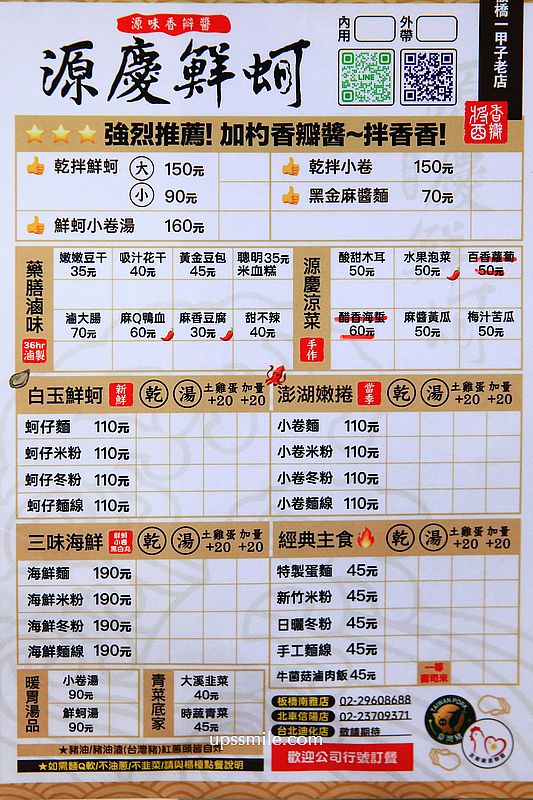 源味香辦醬
源慶鮮蚵
內用
外帶
LINE
板橋一甲子老店
香瓣將酉
強烈推薦! 加杓香瓣醬~拌香香!
乾拌鮮蚵 大 150元
小 90元
鮮蚵小卷湯 160元
乾拌小卷 150元
黑金麻醬麵 70元
藥膳滷味
36hr滷製
嫩嫩豆干 35元
吸汁花干 40元
黃金豆包 45元
聰明米血糕 35元
滷大腸 70元
麻Q鴨血 60元
麻香豆腐 30元
甜不辣 40元
源慶涼菜
手作
酸甜木耳 50元
水果泡菜 50元
百香蘿蔔 50元
醋香海蜇 60元
麻醬黃瓜 50元
梅汁苦瓜 50元
白玉鮮蚵 新鮮 乾 湯 土雞蛋+20 加量+20
蚵仔麵 110元
蚵仔米粉 110元
蚵仔冬粉 110元
蚵仔麵線 110元
澎湖嫩捲 當季 乾 湯 土雞蛋+20 加量+20
小卷麵 110元
小卷米粉 110元
小卷冬粉 110元
小卷麵線 110元
三味海鮮 鮮蚵小卷黑白丸 乾 湯 土雞蛋+20 加量+20
海鮮麵 190元
海鮮米粉 190元
海鮮冬粉 190元
海鮮麵線 190元
經典主食 乾 湯 土雞蛋+20 加量+20
特製蛋麵 45元
新竹米粉 45元
日曬冬粉 45元
手工麵線 45元
牛菌菇滷肉飯 45元
一等壽司米
暖胃湯品
小卷湯 90元
鮮蚵湯 90元
青菜底家
大溪韭菜 40元
時蔬青菜 45元
板橋南雅店 02-29608688
北車信陽店 02-23709371
台北迪化店 敬請期待
歡迎公司行號訂餐
TAIWAN PORK
臺灣豬
★豬油/豬油渣(台灣豬)紅蔥頭皆自炸
★如需麵Q軟/不油蔥/不韭菜/請與櫃檯點餐說明
upssmile.com